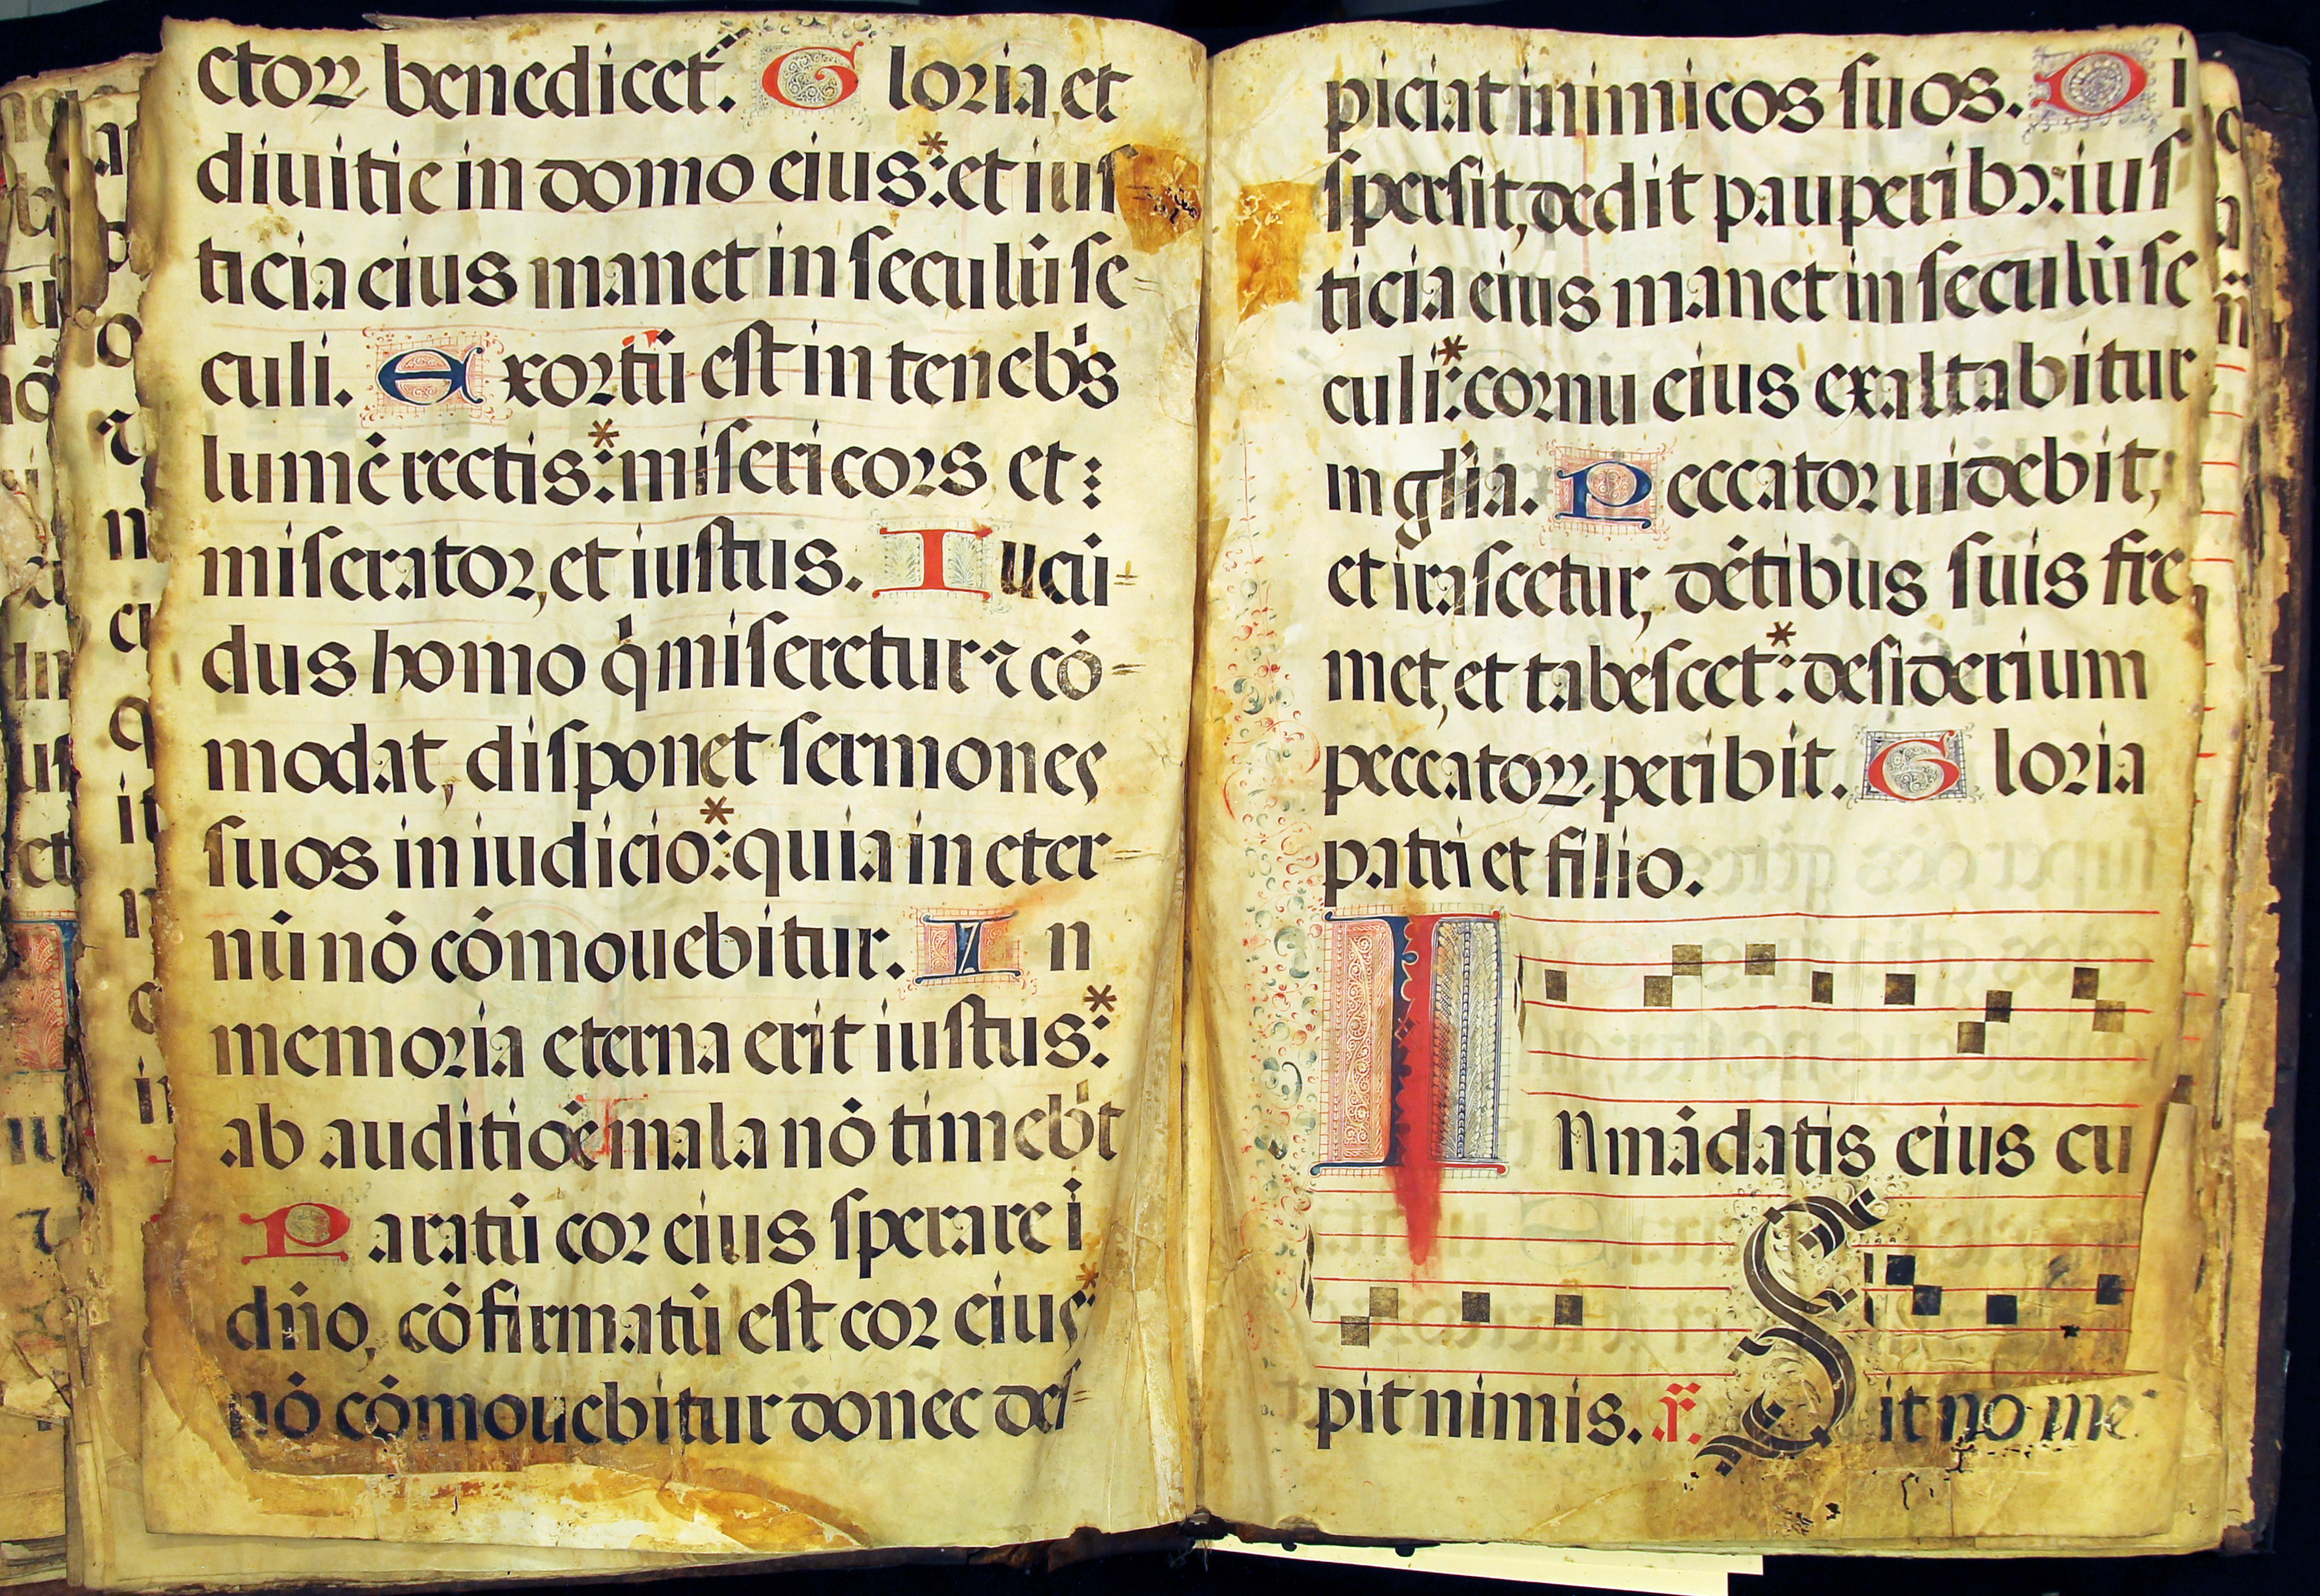 ctoꝝ benedicet᷑. Gloria, et
diuitie in domo eius*: et ius
ticia eius manet in seculū se=
culi. Exortū est in tenebˢs
lumē rectis*: misericors et:
miserator, et iustus. Iucū=
dus homo qͥ miseretur ⁊ cō=
modat, disponet sermones
suos in iudicio*: quia in eter=
nū nō cōmouebitur. In
memoria eterna erit iustus*:
ab auditiōe mala nō timebͥt
Paratū cor eius sperare i
dn̄o, cōfirmatū est cor eius*:
nō cōmouebitur donec des=
piciat inimicos suos. Di
spersit, dedit pauperibꝫ: ius
ticia eius manet in seculū se
culi*: cornu eius exaltabitur
in gl̄ia. Peccator uidebit,
et irascetur, dētibus suis fre
met, et tabescet*: desiderium
peccatoꝝ peribit. Gloria
patri et filio.
In mādatis eius cu
pit nimis. Sit no me